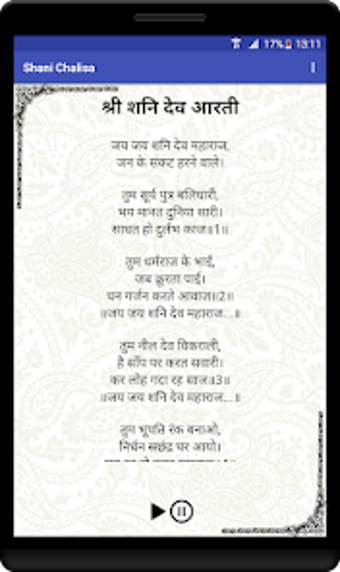 17% 13:11
Shani Chalisa
श्री शनि देव आरती
जय जय शनि देव महाराज,
जन के संकट हरने वाले।
तुम सूर्य पुत्र बलिधारी,
भय मानत दुनिया सारी।
साधत हो दुर्लभ काज॥1॥
तुम धर्मराज के भाई,
जब क्रूरता पाई।
घन गर्जन करते आवाज॥2॥
॥जय जय शनि देव महाराज...॥
तुम नील देव विकराली,
है साँप पर करत सवारी।
कर लोह गदा रह साज॥3॥
॥जय जय शनि देव महाराज...॥
तुम भूपति रंक बनाओ,
निर्धन सछंद्र घर आयो।